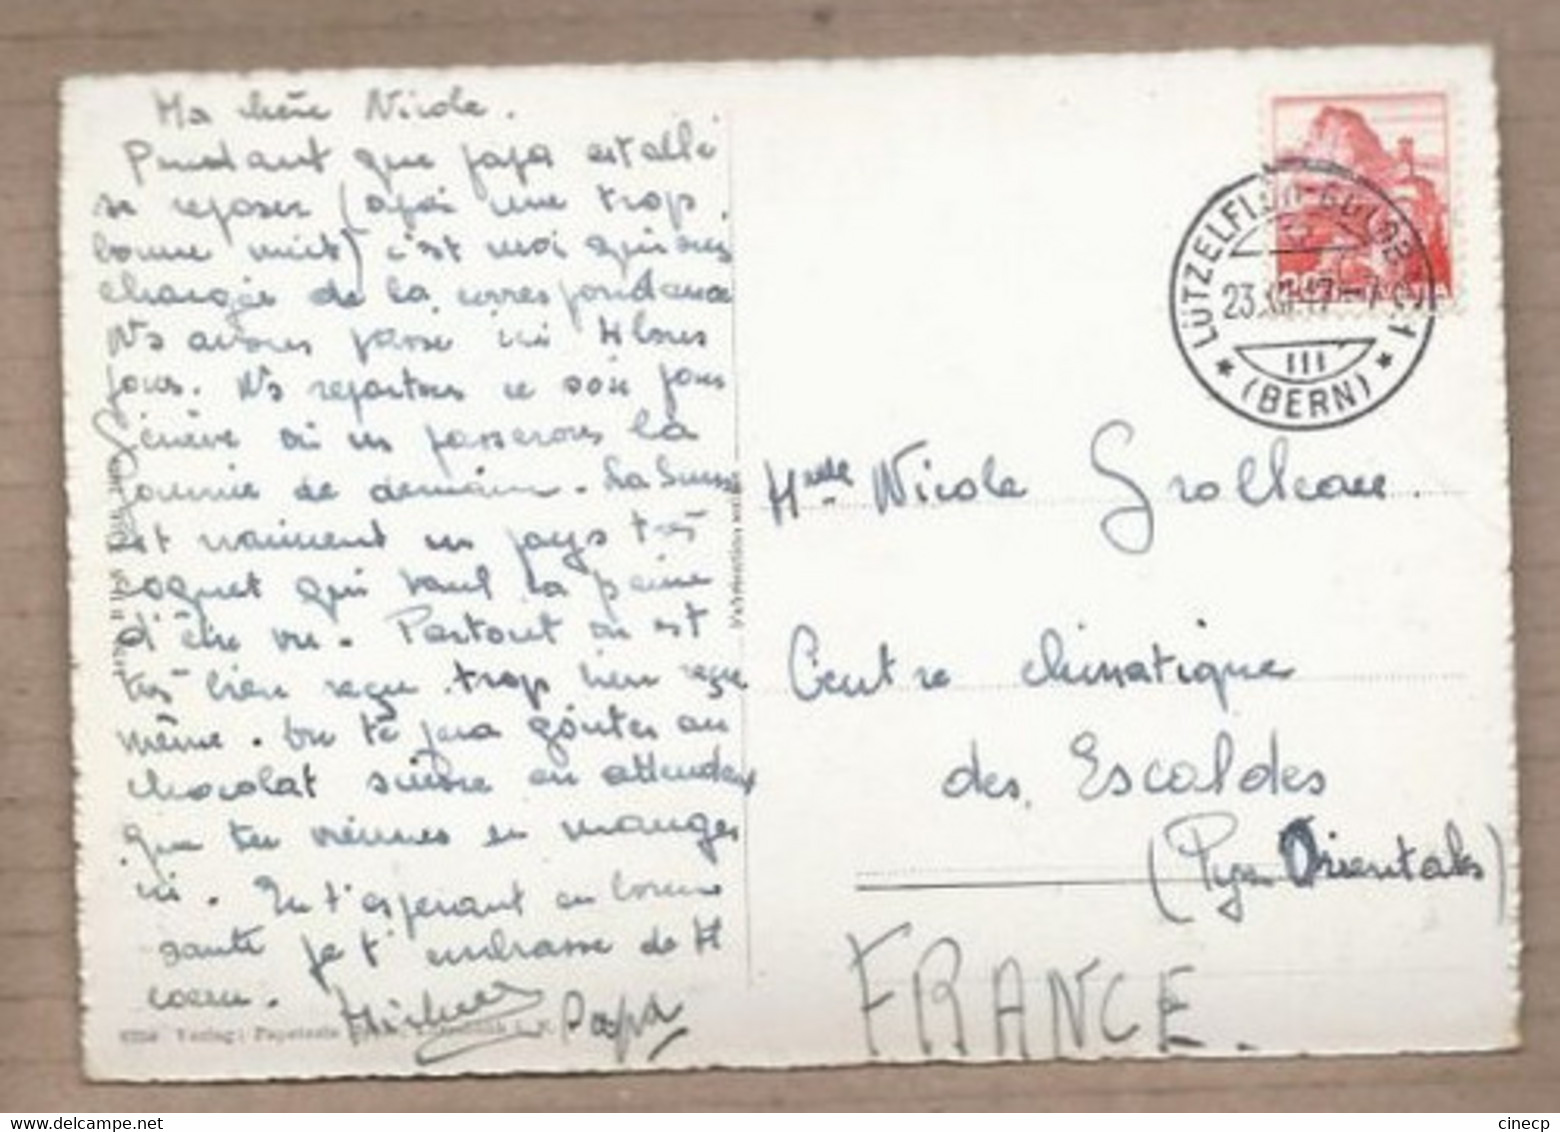 Ma chère Nicole.
Pendant que papa est allé
se reposer (après une trop
bonne nuit) c'est moi qui suis
chargée de la correspondance
Ns avons passé ici
jours. Ns repartons ce soir pour
Genève où ns passerons la
journée de demain. La Suisse
est vraiment un pays très
coquet qui vaut la peine
d'être vu. Partout on est
très bien reçu trop bien reçu
même. On te fera goûter au
chocolat suisse en attendant
que tu viennes en manger
ici. En t'espérant en bonne
santé je t'embrasse de M
coeur.
Papa
Verlag: Papeterie
LÜTZELFLÜH-GOLDBACH 1
23.XII.47-7
III
* (BERN) *
Mlle Nicole Grolleau
Centre climatique
des Escaldes
(Pyr Orientales)
FRANCE.
cinecp